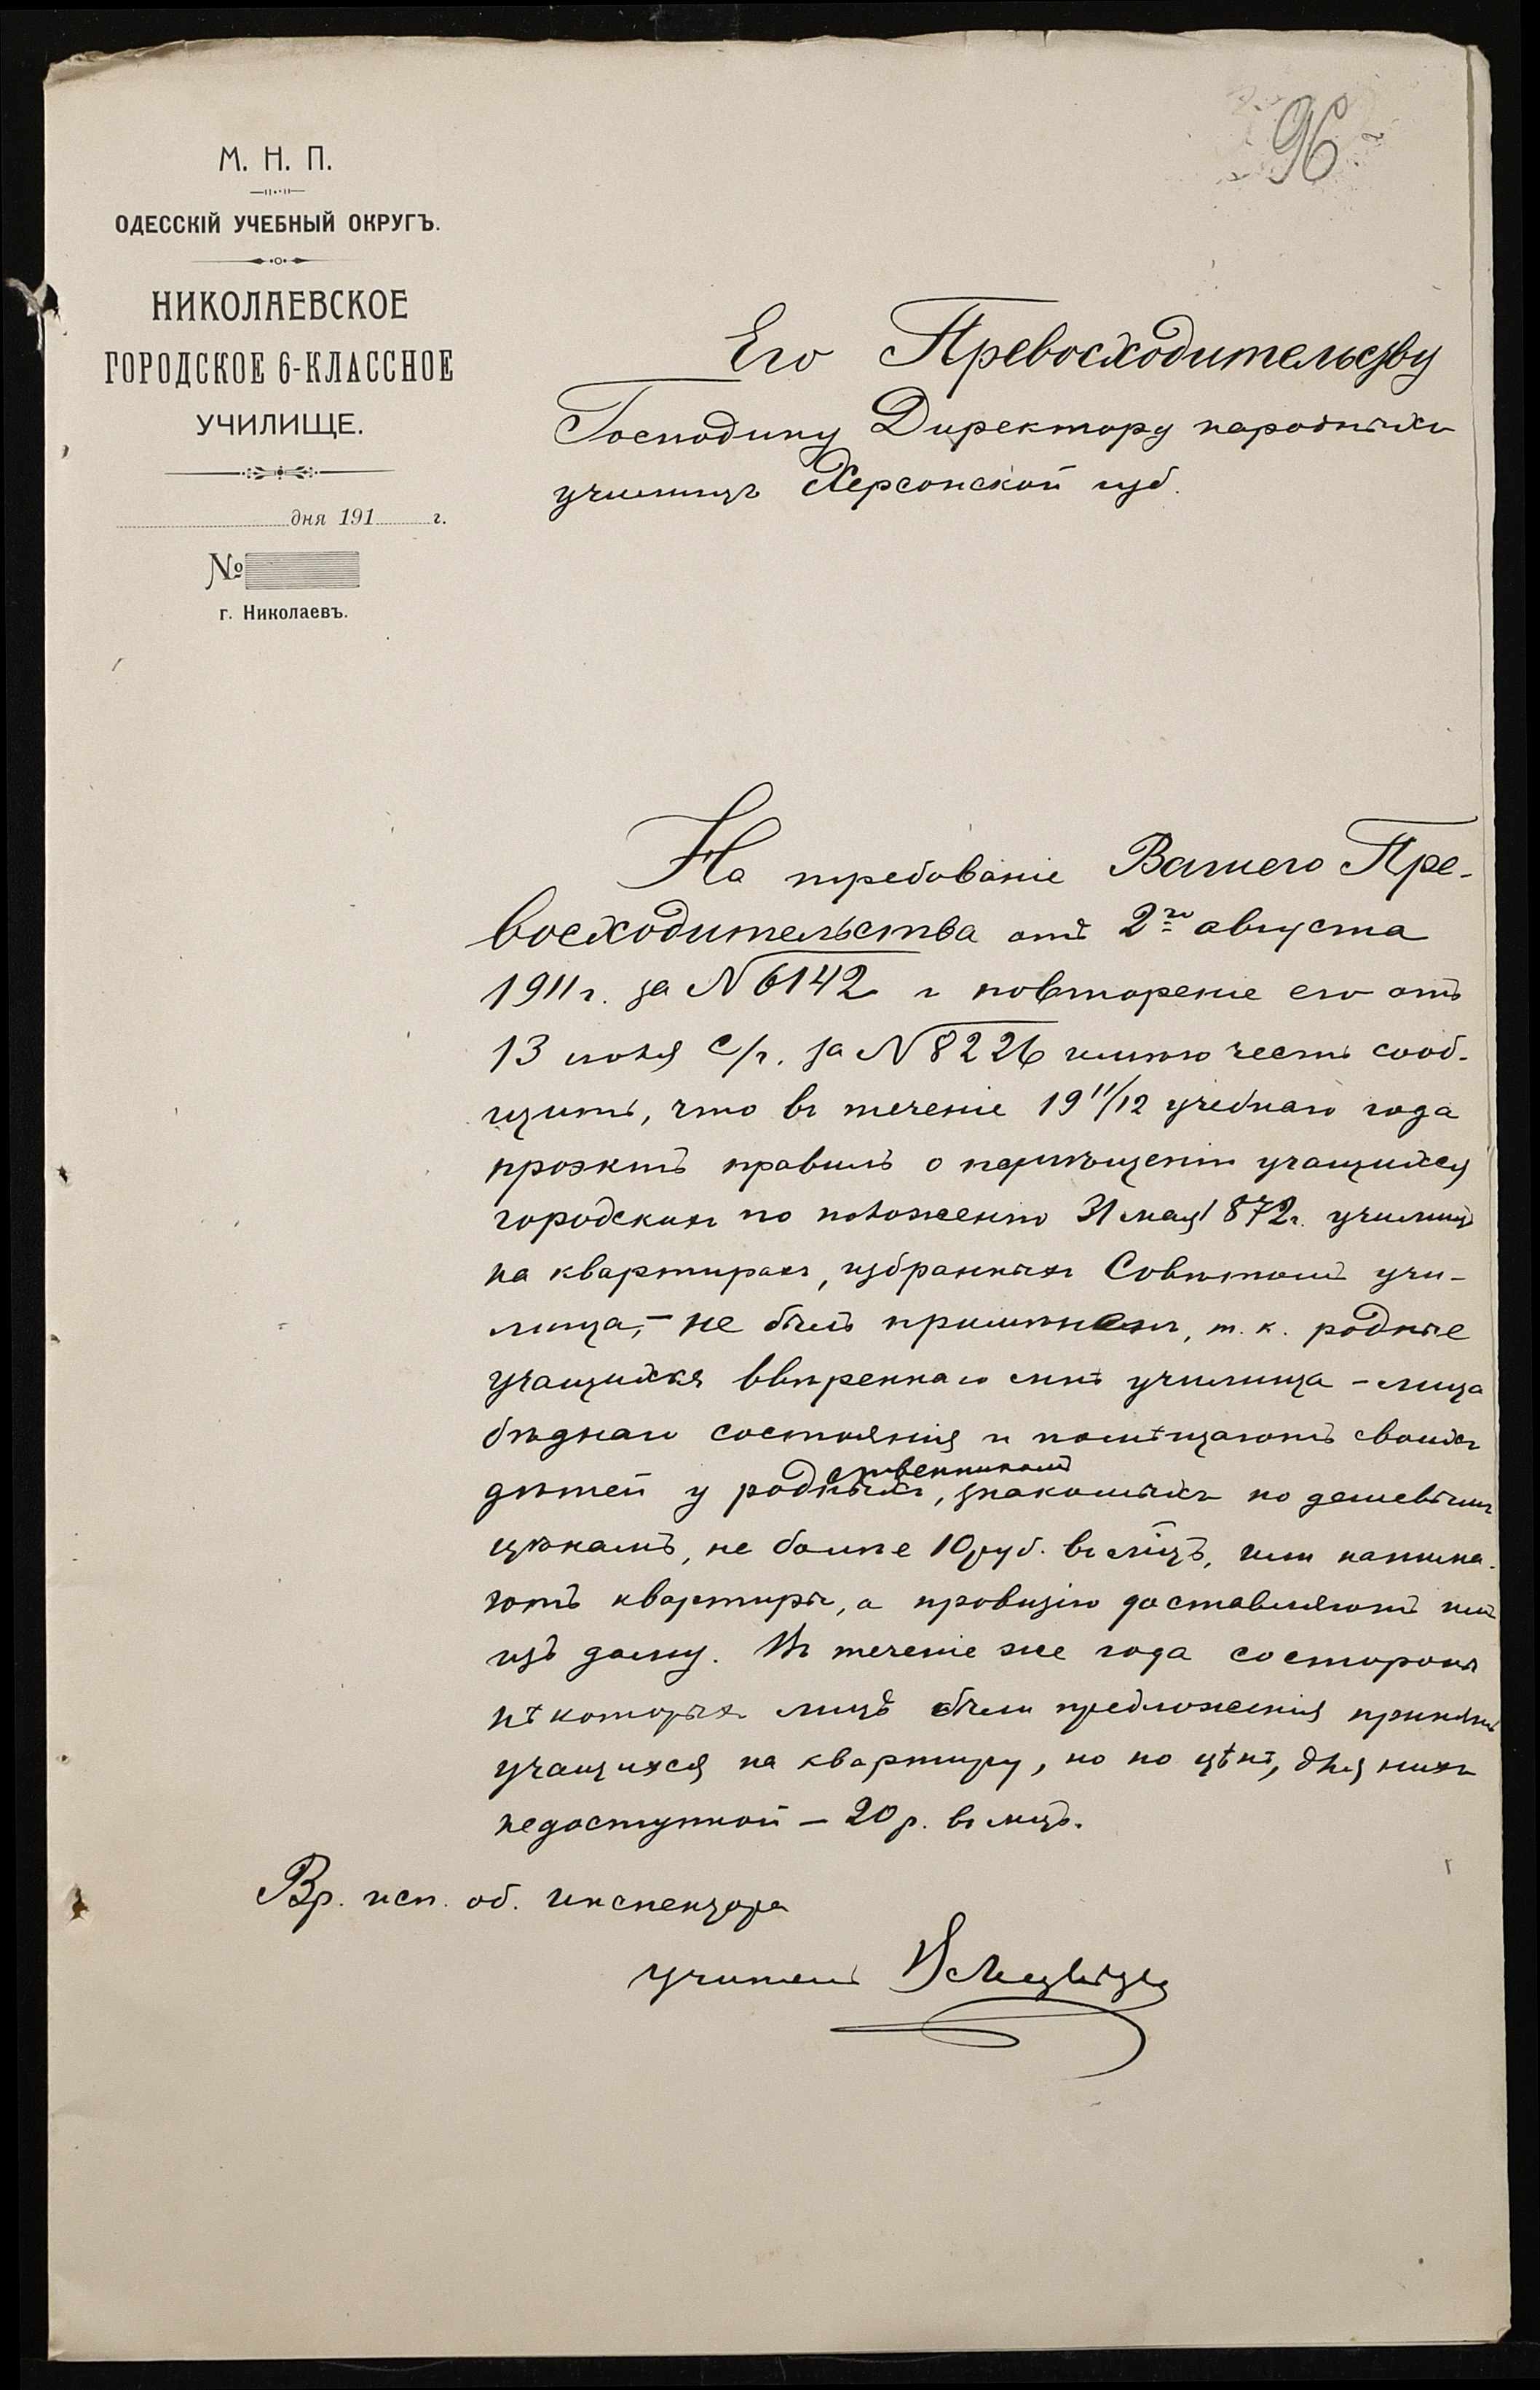 96
М. Н. П.
ОДЕССКІЙ УЧЕБНЫЙ ОКРУГЪ.
НИКОЛАЕВСКОЕ
ГОРОДСКОЕ 6-КЛАССНОЕ
УЧИЛИЩЕ.
дня 191 г.
№
г. Николаевъ.
Его Превосходительству
Господину Директору народныхъ
училищъ Херсонской губ.
На требованіе Вашего Пре-
восходительства отъ 2го августа
1911 г. за № 6142 и повтореніе его отъ
13 іюня с/г. за № 8226 имѣю честь сооб-
щить, что въ теченіе 19 11/12 учебнаго года
проэктъ правилъ о помѣщеніи учащихся
городскихъ по положенію 31 мая 1872 г. училищъ
на квартирахъ, избранныхъ Совѣтомъ учи-
лища, – не былъ примѣненъ, т. к. родные
учащихся ввѣреннаго мнѣ училища – лица
бѣднаго состоянія и помѣщаютъ своихъ
ственниковъ
дѣтей у родныхъ, знакомыхъ по дешевымъ
цѣнамъ, не болѣе 10 руб. въ мѣцъ, или нанима-
ютъ квартиры, а провизію доставляютъ имъ
изъ дому. Въ теченіе же года со стороны
нѣкоторыхъ лицъ были предложенія принять
учащихся на квартиру, но по цѣнѣ, для нихъ
недоступной – 20 р. въ мцъ.
Вр. исп. об. инспектора
учитель